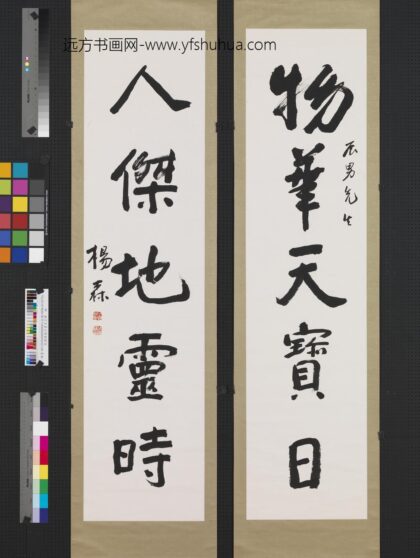 远方书画网-www.yfshuhua.com
物華天寶日
辰男先生
人傑地靈時
楊森